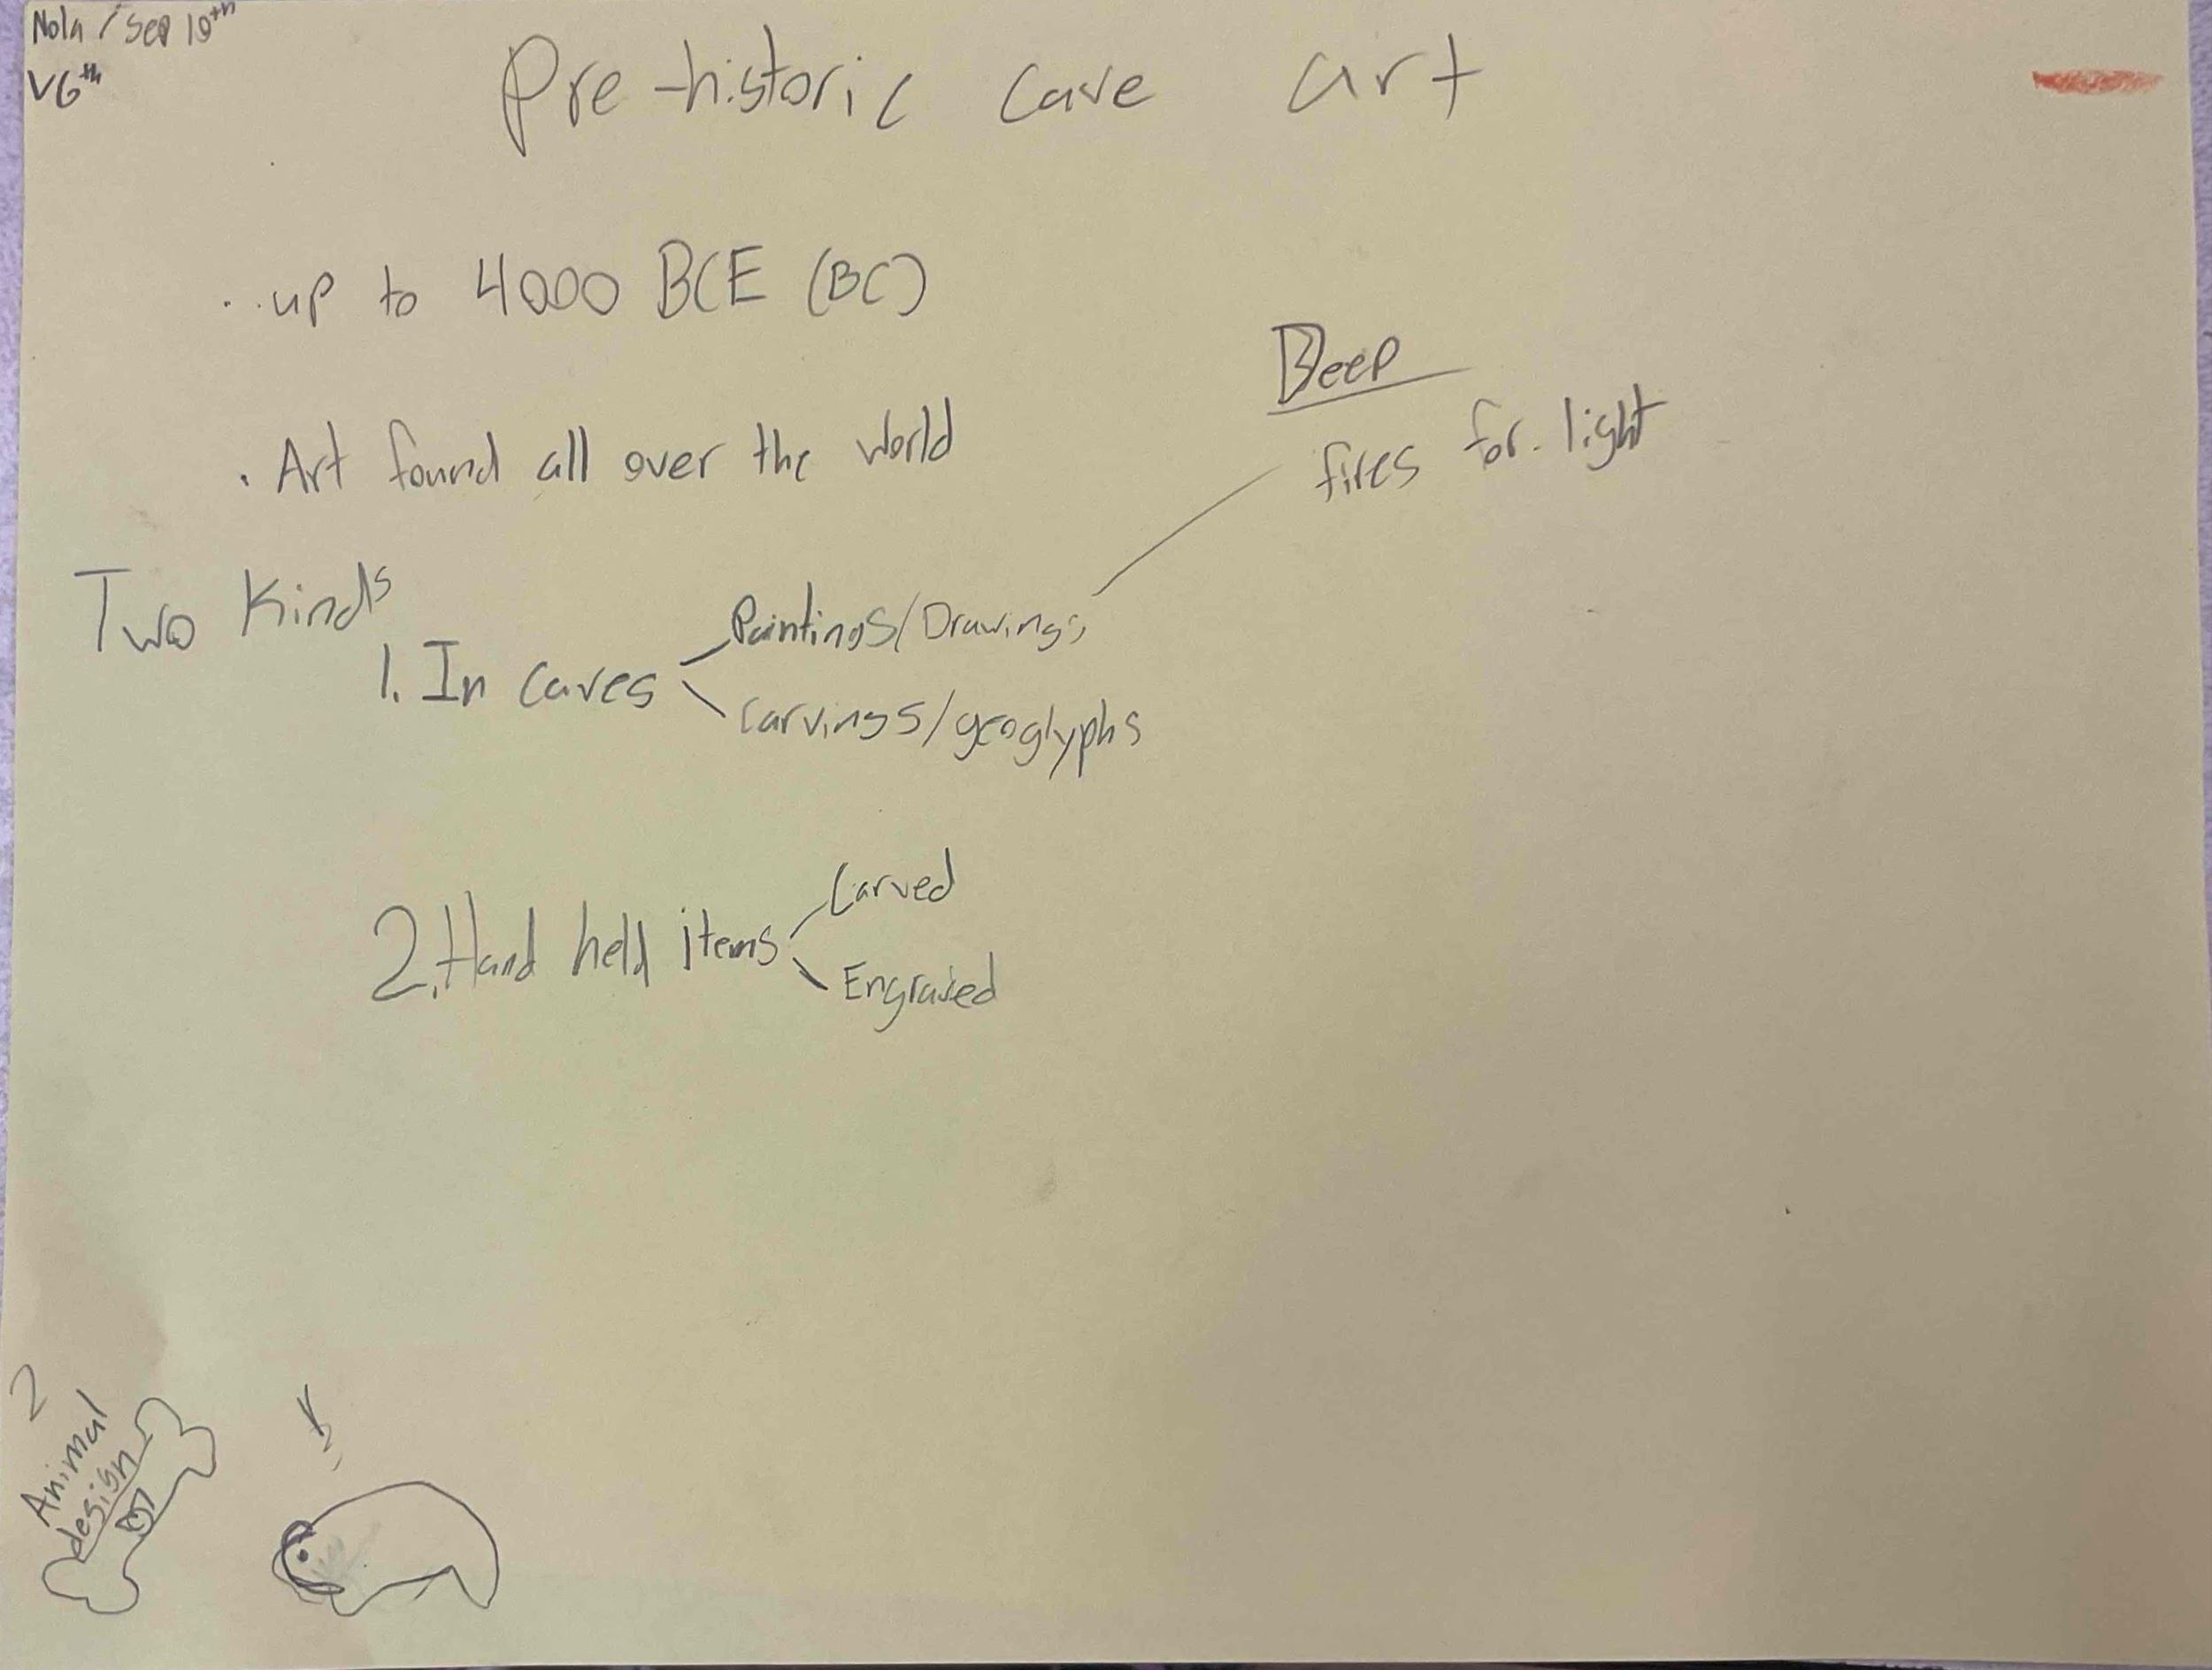 Nola / Sep 19th
V6th
Pre-historic cave art
. . up to 4000 BCE (BC)
. Art found all over the world
Deep
fires for light
Two Kinds
1. In caves
Paintings/Drawings
carvings/geoglyphs
2. Hand held items
Carved
Engraved
2
Animal
design